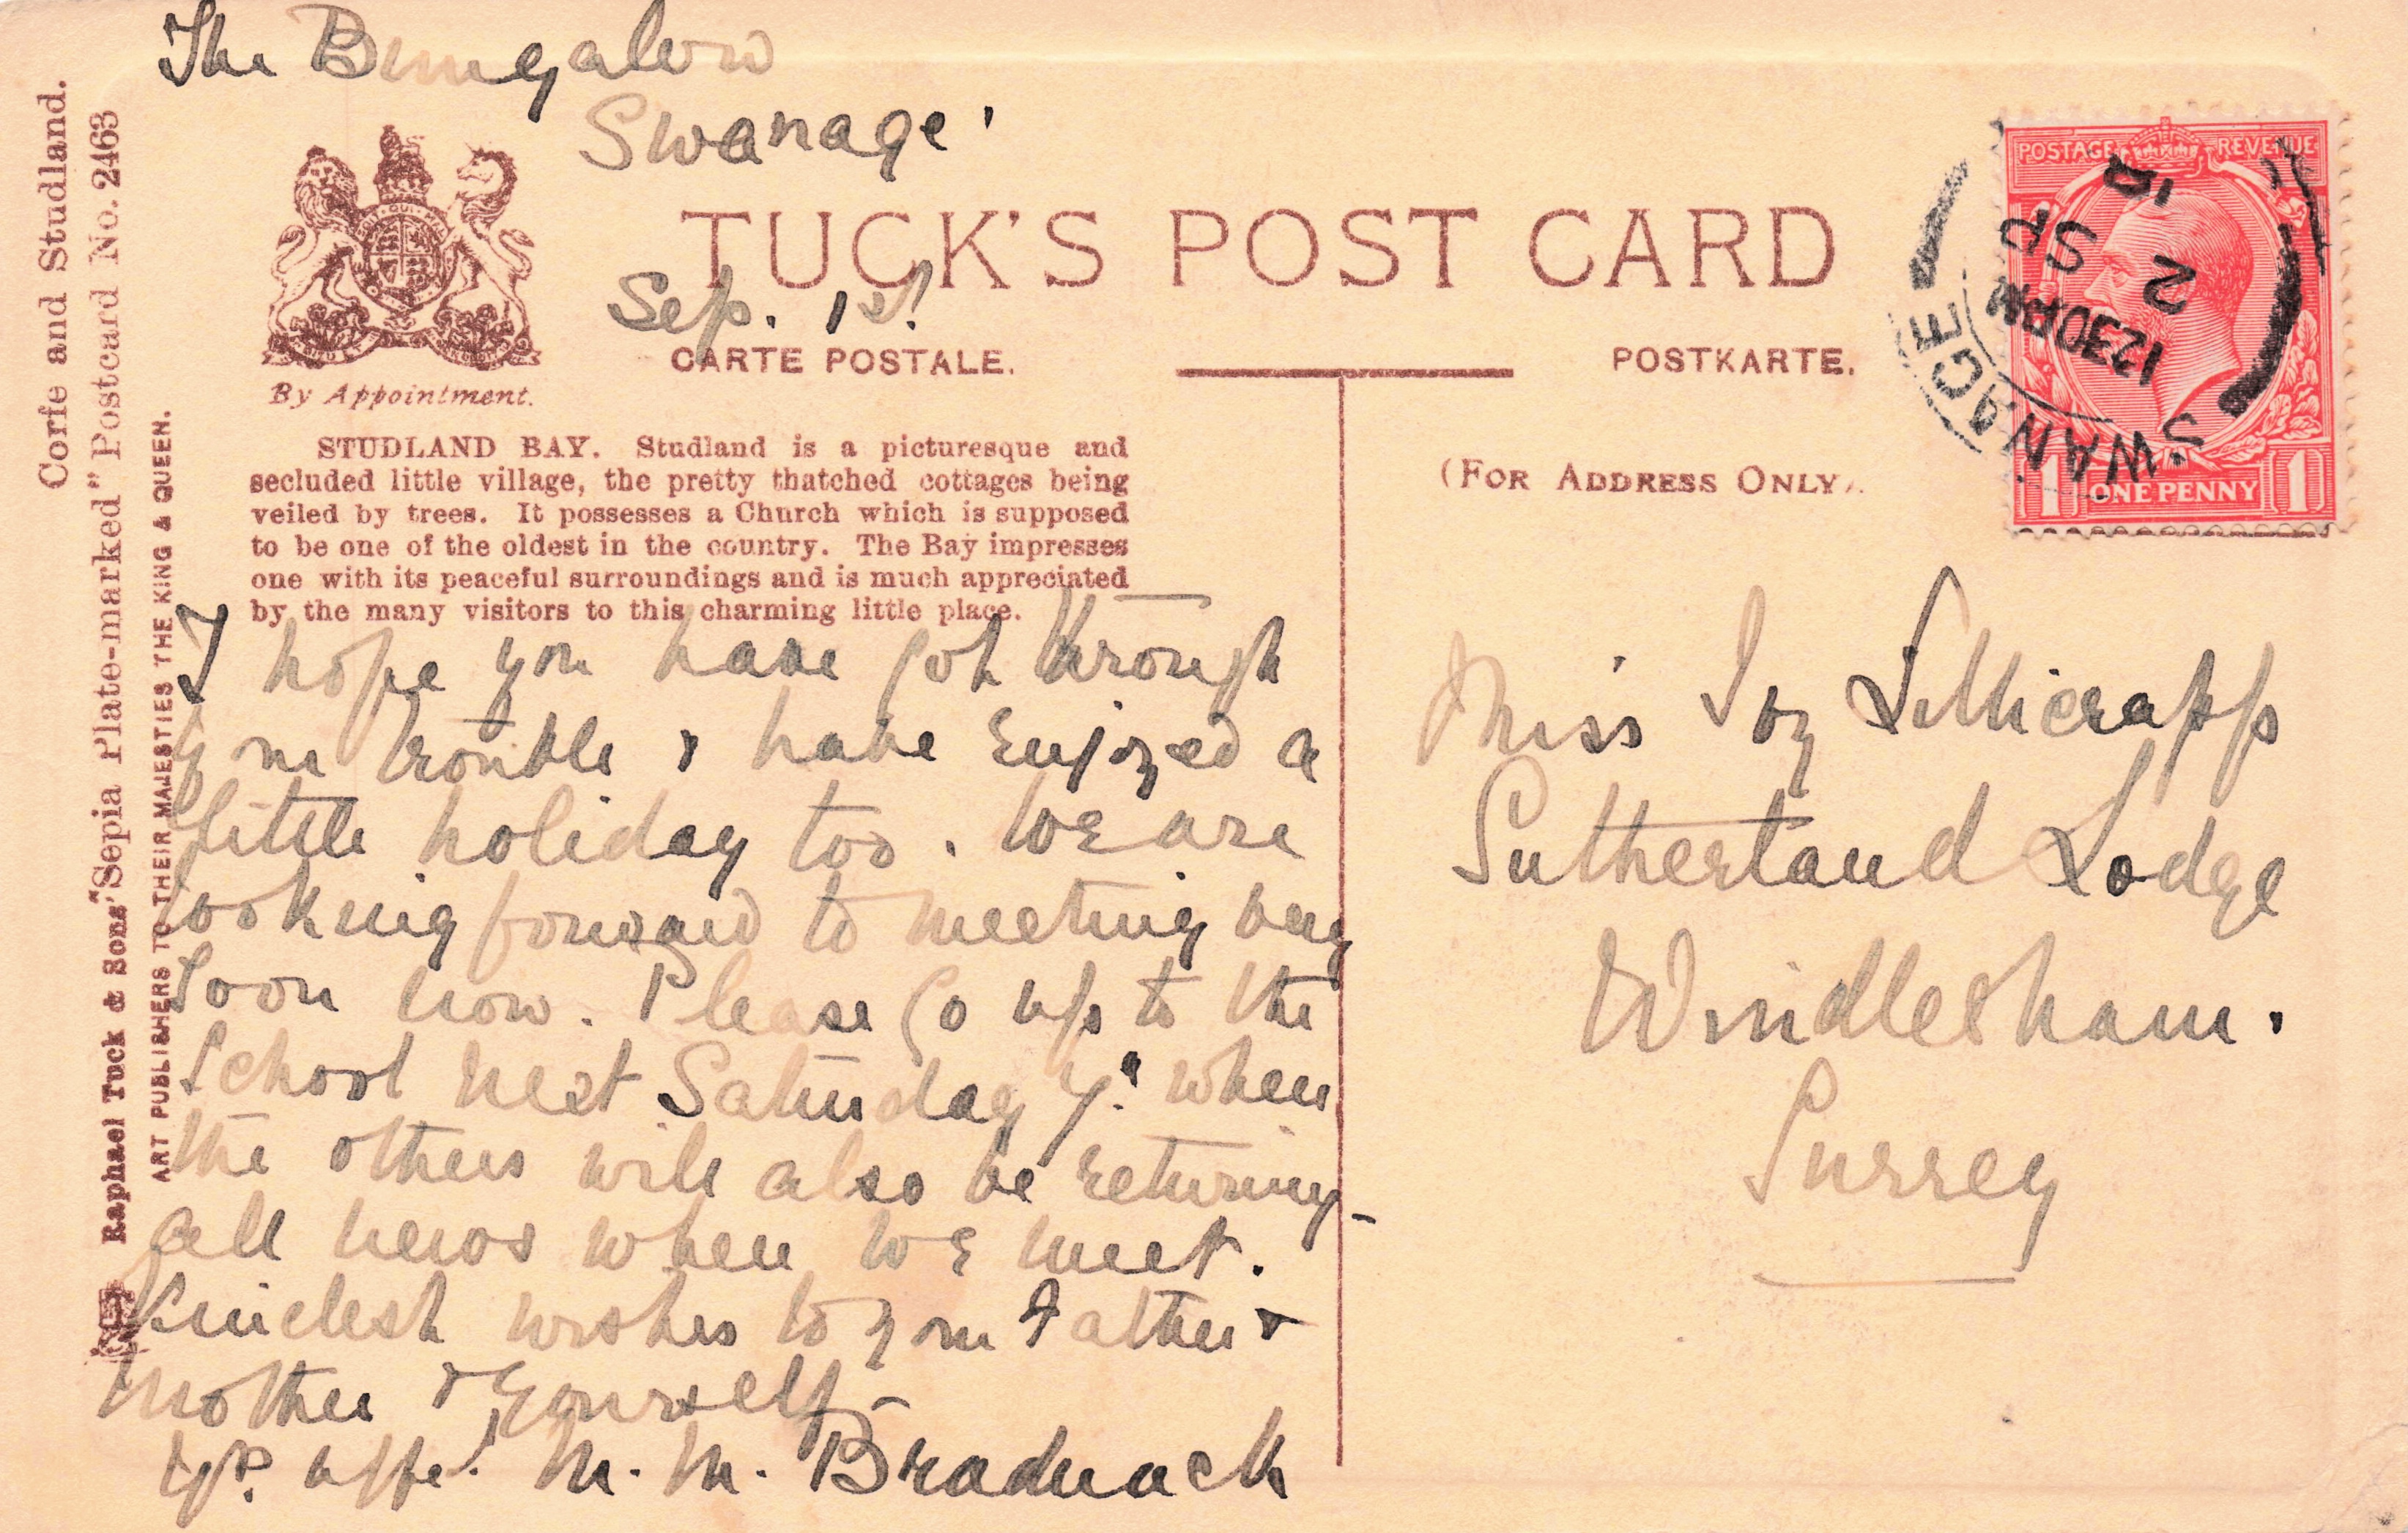 The Bungalow
Swanage.
TUCK'S POST CARD
Sep. 1st
CARTE POSTALE.
POSTKARTE.
By Appointment.
(FOR ADDRESS ONLY).
STUDLAND BAY. Studland is a picturesque and
secluded little village, the pretty thatched cottages being
veiled by trees. It possesses a Church which is supposed
to be one of the oldest in the country. The Bay impresses
one with its peaceful surroundings and is much appreciated
by the many visitors to this charming little place.
I hope you have got through
your trouble & have enjoyed a
little holiday too. We are
looking forward to meeting very
soon now. Please go up to the
School next Saturday 7th when
the others will also be returning -
all news when we meet.
Kindest wishes to your Father &
Mother & Yourself -
Yrs affe: M. M. Bradnack
Miss Joy Lillicrapp
Sutherland Lodge
Windlesham.
Surrey
POSTAGE REVENUE
1 ONE PENNY 1
SWANAGE
12 30 PM
2 SP
Corfe and Studland.
Raphael Tuck & Sons' "Sepia Plate-marked" Postcard No. 2463
ART PUBLISHERS TO THEIR MAJESTIES THE KING & QUEEN.